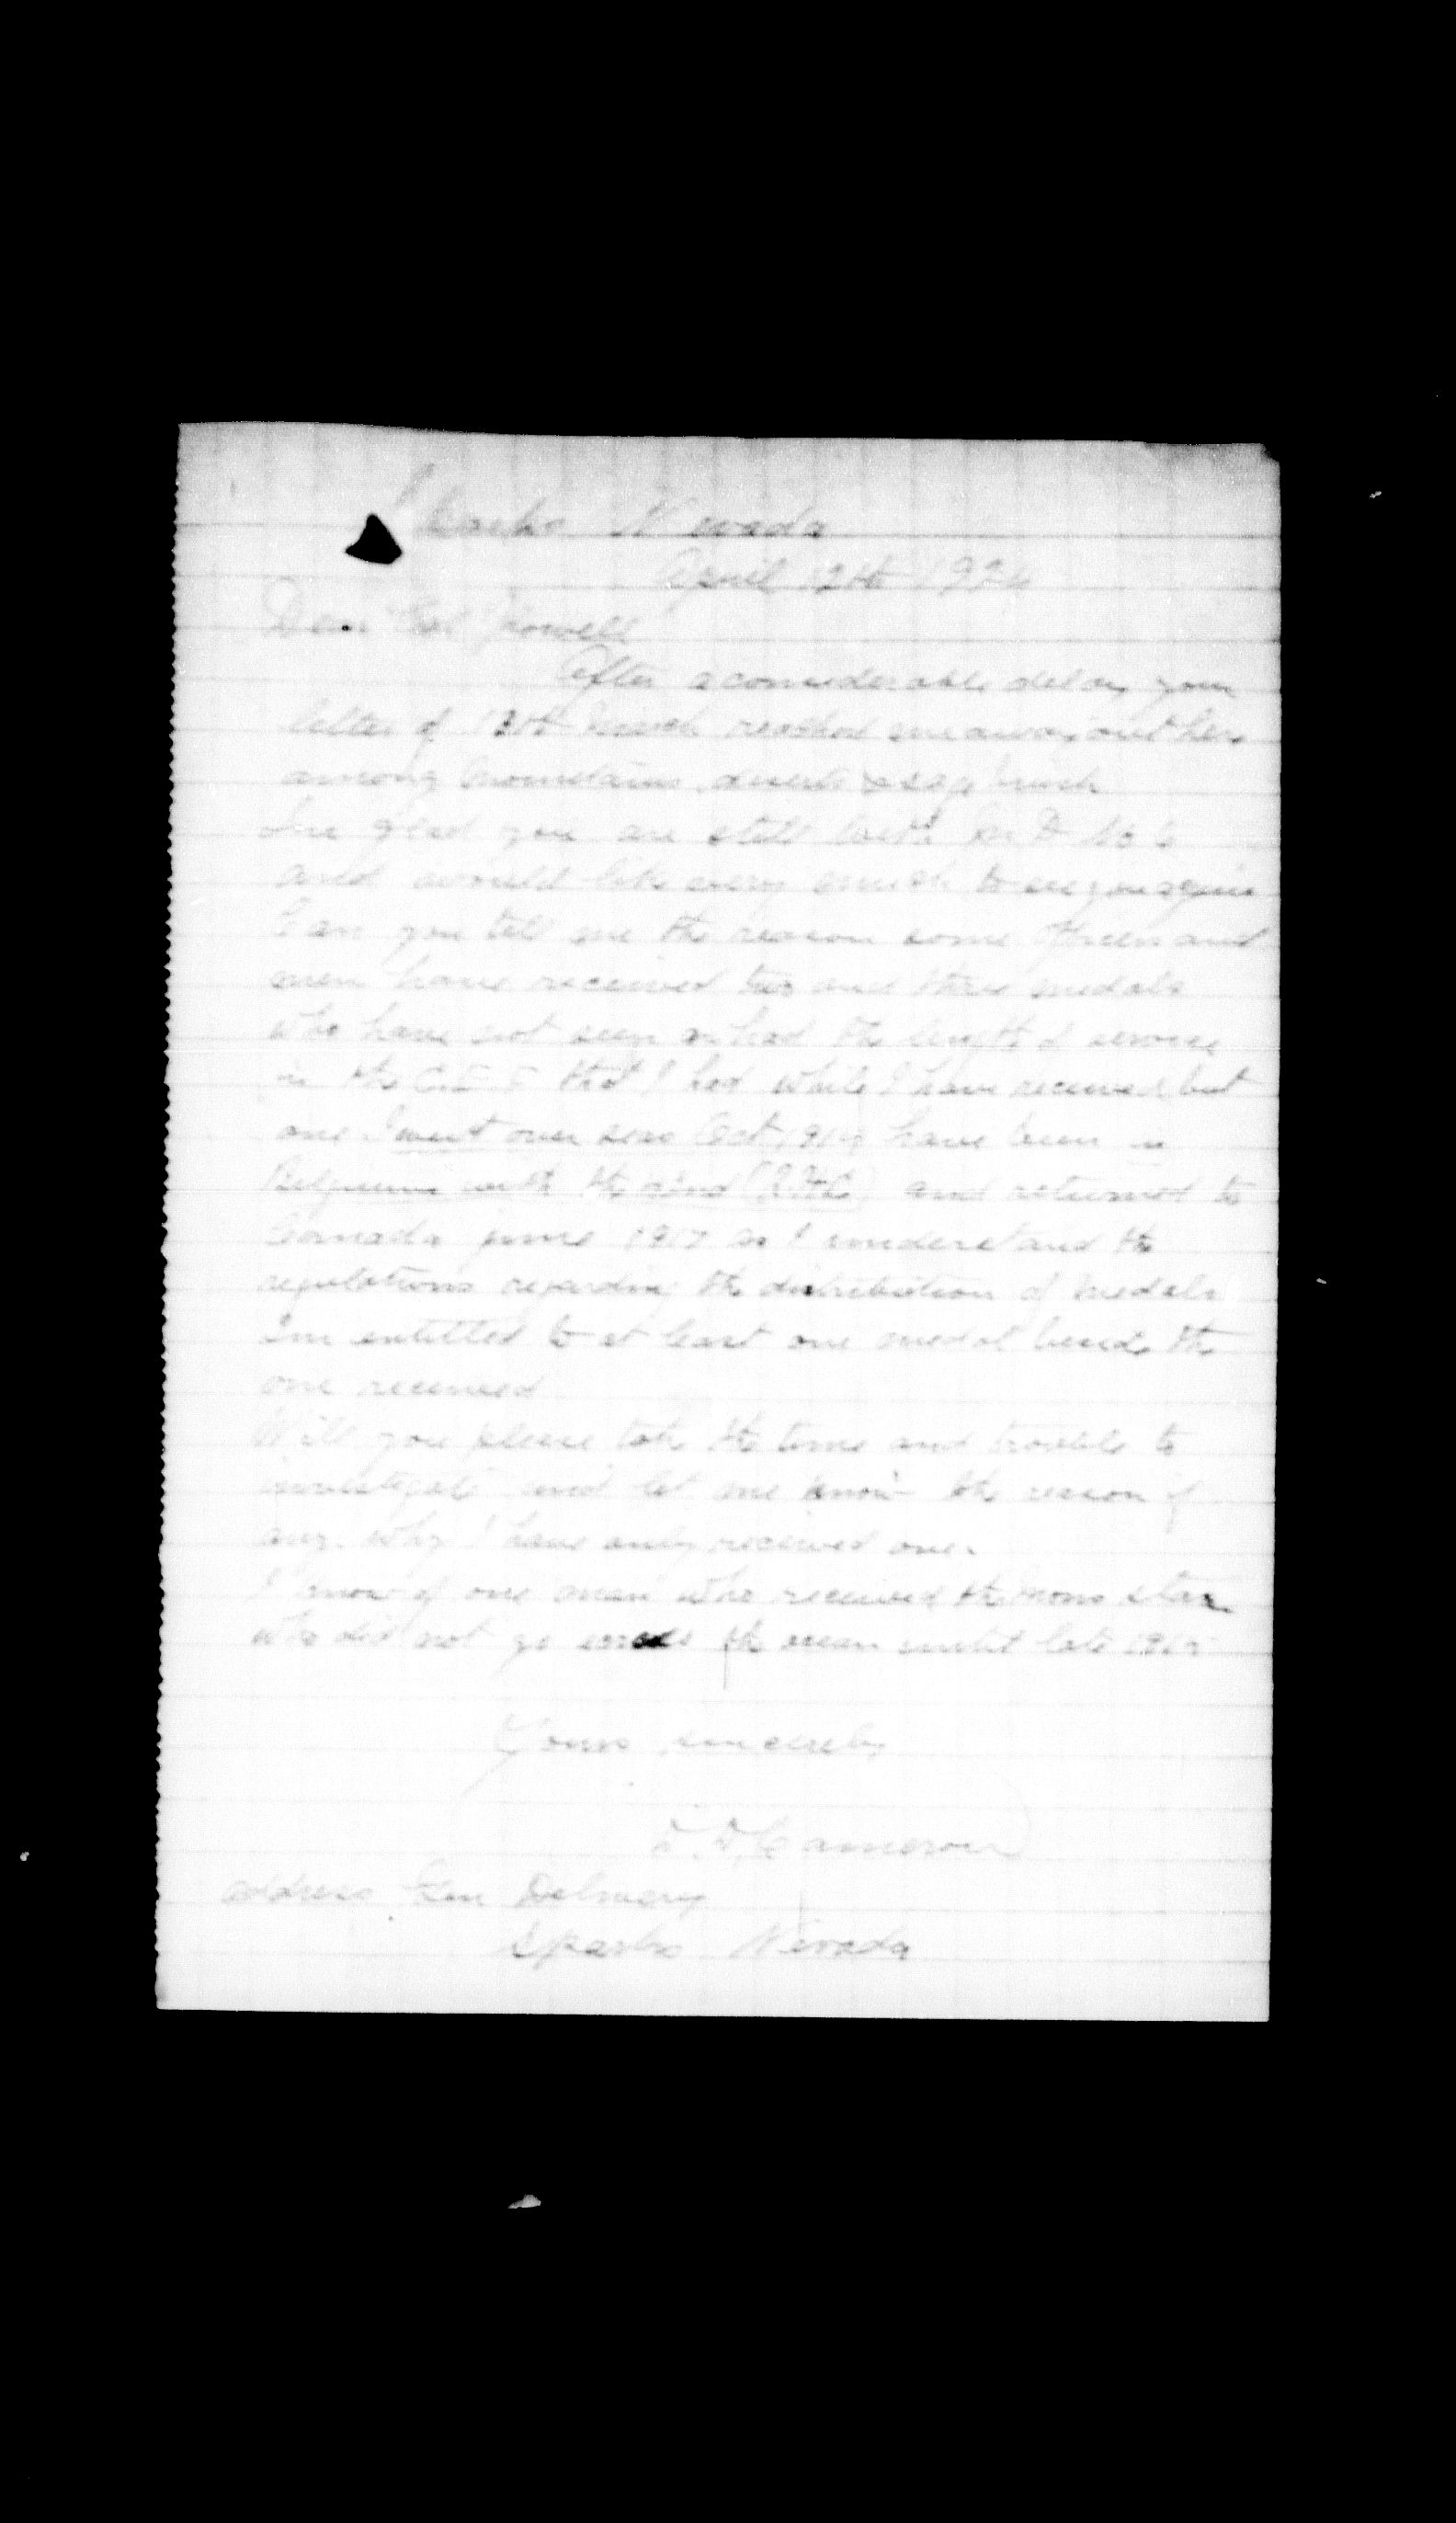 Sparks Nevada
April 12th 1924
Dear Col Powell
After a considerable delay your
letter of 12th March reached me away out here
among mountains, deserts & sage brush
Im glad you are still with M D No 6
and would like very much to see you again
Can you tell me the reason some officers and
men have received two and three medals
who have not seen or had the length of service
in the C.E.F that I had while I have received but
one. I went over seas Oct 1914 have been in
Belgium with the 42nd (R.H.C) and returned to
Canada june 1917 as I understand the
regulations regarding the distribution of medals
Im entitled to at least one medal beside the
one received
Will you please take the time and trouble to
investigate and let me know the reason if
any why I have only received one.
I know of one man who received the Mons star
who did not go across the ocean until late 1915
Yours sincerely
Cameron
Address Gen Delivery
Sparks Nevada